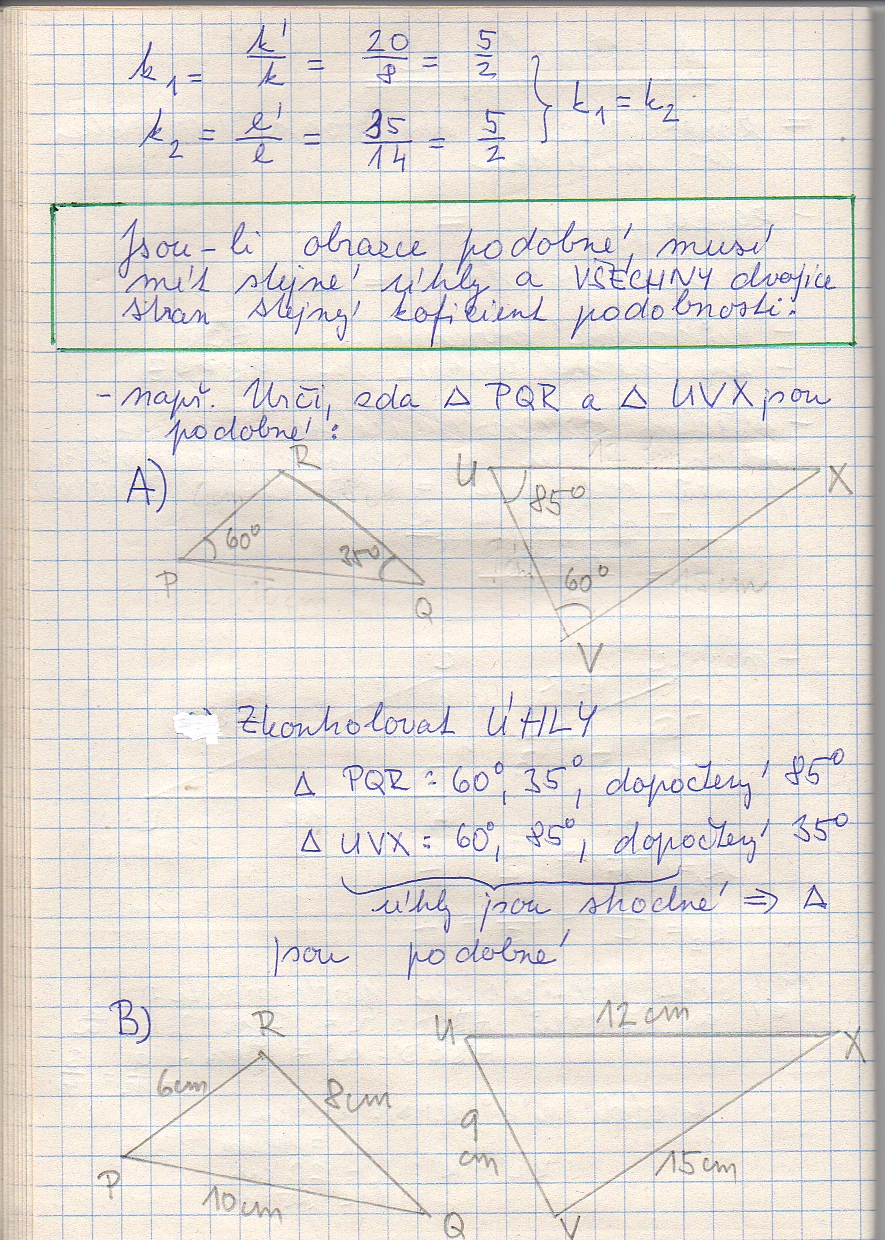 k₁ = k'/k = 20/8 = 5/2
k₂ = e'/e = 35/14 = 5/2 } k₁ = k₂
Jsou-li obrazce podobné, musí
mít stejné úhly a VŠECHNY dvojice
stran stejný koficient podobnosti.
- např. Urči, zda Δ PQR a Δ UVX jsou
podobné:
A)
R
U
X
85°
60°
35°
P
Q
60°
V
Zkontrolovat ÚHLY
Δ PQR = 60°, 35°, dopočtený 85°
Δ UVX = 60°, 85°, dopočtený 35°
úhly jsou shodné ⇒ Δ
jsou podobné
B)
R
U
12 cm
X
6cm
8cm
9
cm
15cm
P
10cm
Q
V